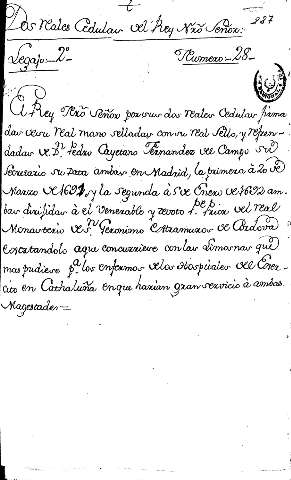 Dos reales Cedulas del Rey Nrõ Señor:
237
Legajo 2º Numero 28
El Rey Nrõ Señor por sus dos reales Cedulas firma
das de su real mano selladas con su real sello, y refren-
dadas de Dn. Pedro Cayetano Fernandez de Campo su
Secretario su data ambas en Madrid, la primera à 20 de
Marzo de 1691, y la segunda à 5 de Enero de 1692 am-
bas dirijidas à el Venerable y devoto Pe. Prior del real
Monasterio de Sn. Geronimo extramuros de Cordova
exortandolo a que concurriere con las limosnas qe.
mas pudiere pa. los enfermos de los Hospitales de Exer-
cito en Cathaluña en que harian gran servicio à ambas
Magestades